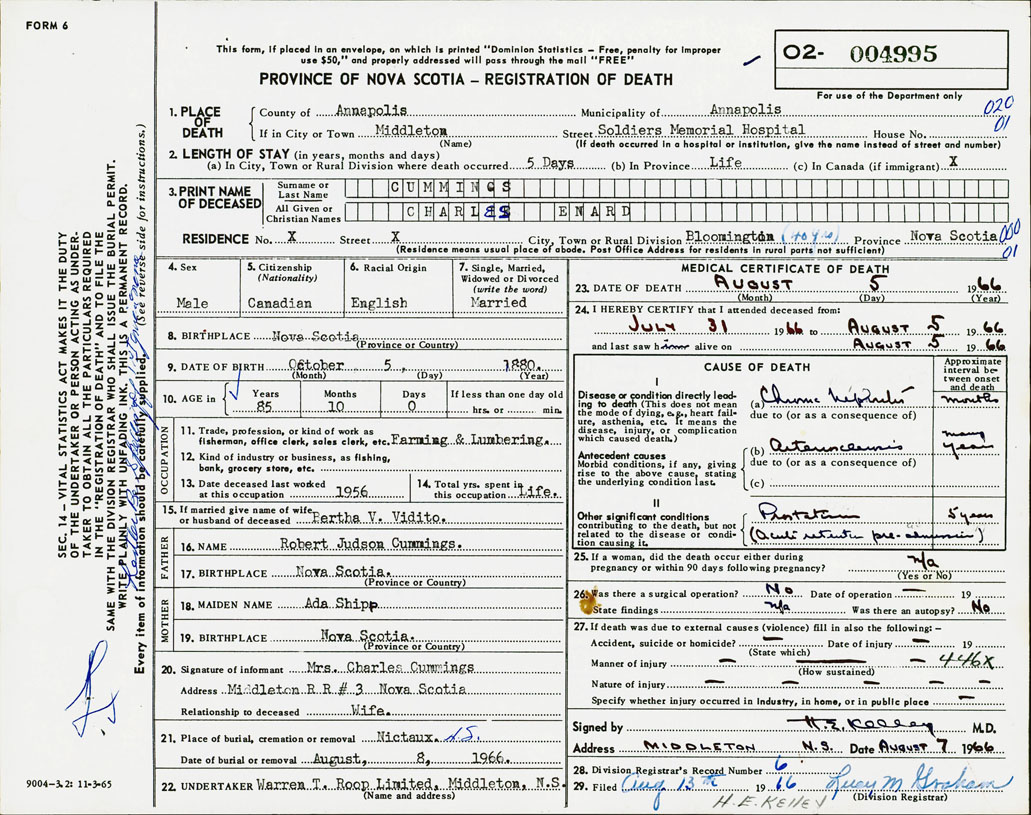 FORM 6
This form, if placed in an envelope, on which is printed "Dominion Statistics – Free, penalty for improper
use $50," and properly addressed will pass through the mail "FREE"
PROVINCE OF NOVA SCOTIA – REGISTRATION OF DEATH
02- 004995
For use of the Department only
1. PLACE OF DEATH
County of Annapolis Municipality of Annapolis 020
If in City or Town Middleton Street Soldiers Memorial Hospital House No. 01
(Name) (If death occurred in a hospital or institution, give the name instead of street and number)
2. LENGTH OF STAY (in years, months and days)
(a) In City, Town or Rural Division where death occurred 5 Days (b) In Province Life (c) In Canada (if immigrant) X
3. PRINT NAME OF DECEASED
Surname or Last Name CUMMINGS
All Given or Christian Names CHARLES ENARD
RESIDENCE No. X Street X City, Town or Rural Division Bloomington (40 yrs) Province Nova Scotia 000
(Residence means usual place of abode. Post Office Address for residents in rural parts not sufficient) 01
4. Sex
Male
5. Citizenship
(Nationality)
Canadian
6. Racial Origin
English
7. Single, Married,
Widowed or Divorced
(write the word)
Married
8. BIRTHPLACE Nova Scotia
(Province or Country)
9. DATE OF BIRTH October 5, 1880.
(Month) (Day) (Year)
10. AGE in Years Months Days If less than one day old
85 10 0 hrs. or min.
OCCUPATION
11. Trade, profession, or kind of work as
fisherman, office clerk, sales clerk, etc. Farming & Lumbering.
12. Kind of industry or business, as fishing,
bank, grocery store, etc.
13. Date deceased last worked
at this occupation 1956
14. Total yrs. spent in
this occupation Life.
15. If married give name of wife
or husband of deceased Bertha V. Vidito.
FATHER
16. NAME Robert Judson Cummings.
17. BIRTHPLACE Nova Scotia.
(Province or Country)
MOTHER
18. MAIDEN NAME Ada Shipp
19. BIRTHPLACE Nova Scotia.
(Province or Country)
20. Signature of informant Mrs. Charles Cummings
Address Middleton R.R.# 3 Nova Scotia
Relationship to deceased Wife.
21. Place of burial, cremation or removal Nictaux. N.S.
Date of burial or removal August, 8, 1966.
22. UNDERTAKER Warren T. Roop Limited, Middleton, N.S.
(Name and address)
MEDICAL CERTIFICATE OF DEATH
23. DATE OF DEATH AUGUST 5 1966
(Month) (Day) (Year)
24. I HEREBY CERTIFY that I attended deceased from:
JULY 31 1966 to AUGUST 5 1966
and last saw him alive on AUGUST 5 1966
CAUSE OF DEATH
Approximate
interval be-
tween onset
and death
I
Disease or condition directly lead-
ing to death (This does not mean
the mode of dying, e.g., heart fail-
ure, asthenia, etc. It means the
disease, injury, or complication
which caused death.)
(a) Chronic Nephritis months
due to (or as a consequence of)
Antecedent causes
Morbid conditions, if any, giving
rise to the above cause, stating
the underlying condition last.
(b) many years
due to (or as a consequence of)
(c)
II
Other significant conditions
contributing to the death, but not
related to the disease or condi-
tion causing it.
5 years
(Acute retention pre-admission)
25. If a woman, did the death occur either during
pregnancy or within 90 days following pregnancy? n/a
(Yes or No)
26. Was there a surgical operation? No Date of operation — 19
State findings n/a Was there an autopsy? No
27. If death was due to external causes (violence) fill in also the following: –
Accident, suicide or homicide? — Date of injury — 19
(State which)
Manner of injury — — — 446X
(How sustained)
Nature of injury — — — —
Specify whether injury occurred in industry, in home, or in public place —
Signed by H.E. Kelley M.D.
Address MIDDLETON N.S. Date AUGUST 7 1966
28. Division Registrar's Record Number 6
29. Filed Aug 13th 1966 Lucy M Graham
H.E. KELLEY (Division Registrar)
SEC. 14 – VITAL STATISTICS ACT MAKES IT THE DUTY
OF THE UNDERTAKER OR PERSON ACTING AS UNDER-
TAKER TO OBTAIN ALL THE PARTICULARS REQUIRED
IN THE "REGISTRATION OF DEATH" AND TO FILE THE
SAME WITH THE DIVISION REGISTRAR WHO SHALL ISSUE THE BURIAL PERMIT.
WRITE PLAINLY WITH UNFADING INK. THIS IS A PERMANENT RECORD.
Every item of information should be carefully supplied. (See reverse side for instructions.)
9004-3.2: 11-3-65